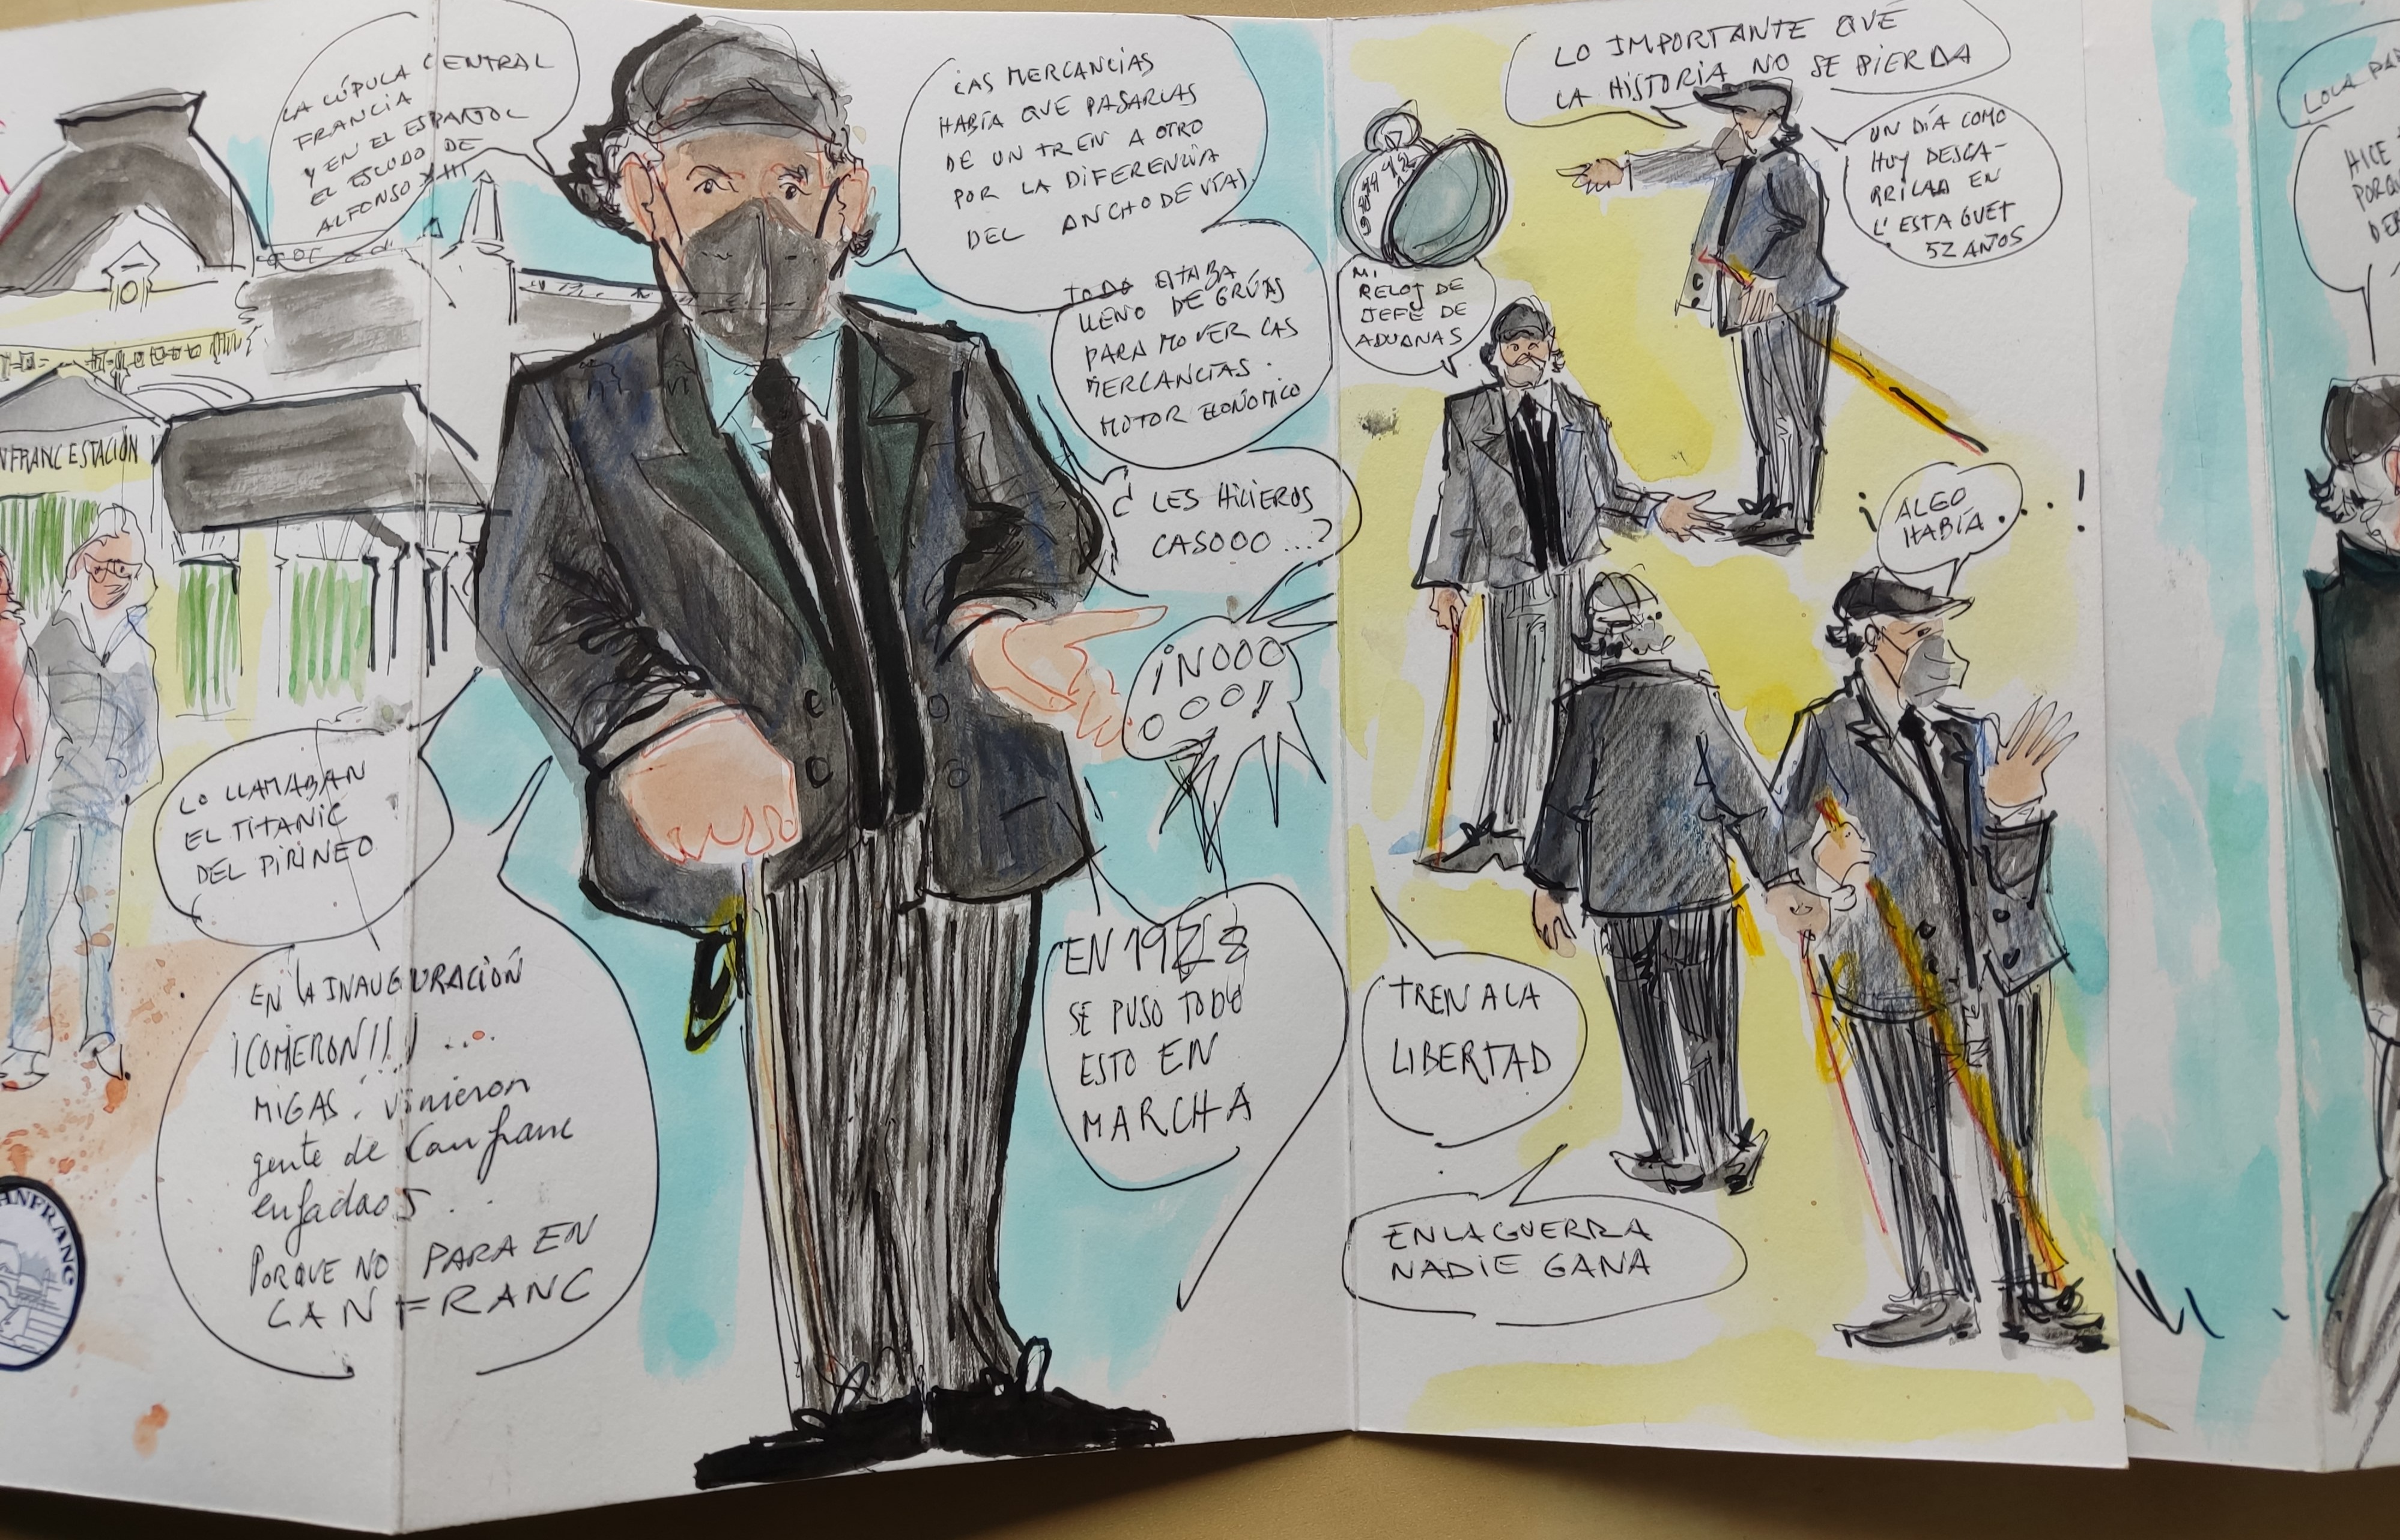 LA CÚPULA CENTRAL
FRANCIA
Y EN EL ESPAÑOL
EL ESCUDO DE
ALFONSO XIII
NFRANC ESTACIÓN
LO LLAMABAN
EL TITANIC
DEL PIRINEO
EN LA INAUGURACIÓN
¡COMERON!!! ...
MIGAS. vinieron
gente de Canfranc
enfadaos.
PORQUE NO PARA EN
CANFRANC
ANFRANC
LAS MERCANCIAS
HABÍA QUE PASARLAS
DE UN TREN A OTRO
POR LA DIFERENCIA
DEL ANCHO DE VÍAS
TODO ESTABA
LLENO DE GRÚAS
PARA MOVER LAS
MERCANCIAS.
MOTOR ECONÓMICO
¿LES HICIEROS
CASOOO...?
¡NOOO
OOO!
EN 1928
SE PUSO TODO
ESTO EN
MARCHA
LO IMPORTANTE QUE
LA HISTORIA NO SE PIERDA
UN DÍA COMO
HOY DESCA-
RRILAA EN
L'ESTAGUET
52 AÑOS
MI
RELOJ DE
JEFE DE
ADUANAS
¡ALGO
HABÍA...!
TREN A LA
LIBERTAD
EN LA GUERRA
NADIE GANA
LOLA
HICE
PORQU